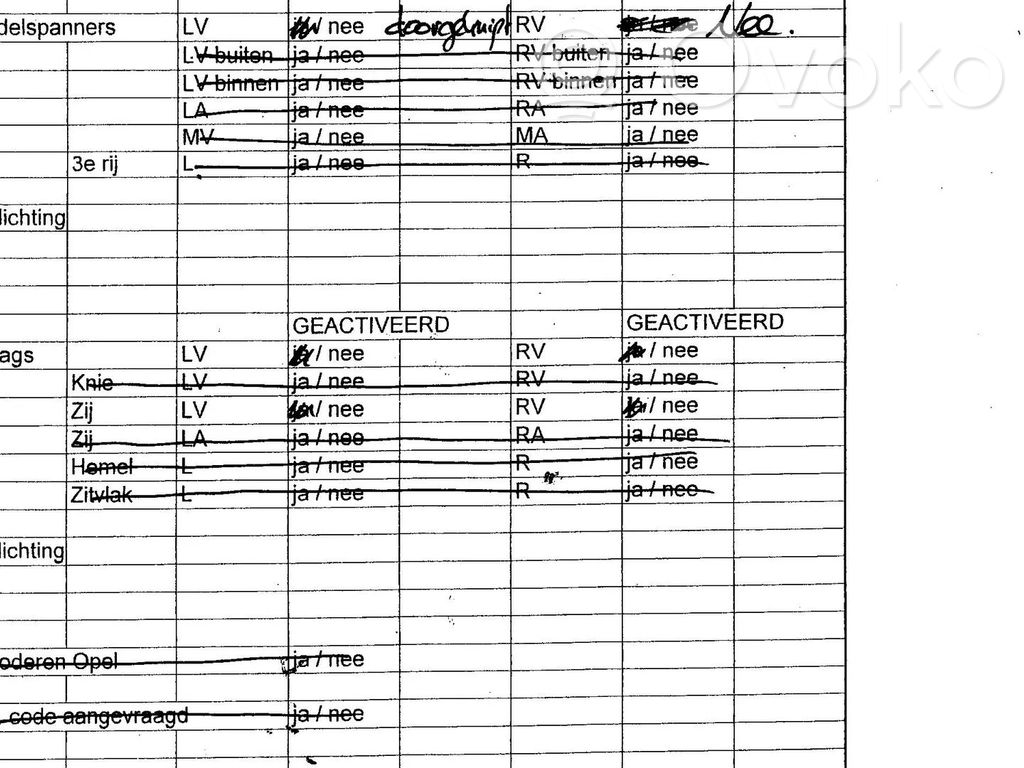 delspanners LV ja / nee doorgeknipt RV ja / nee Nee.
LV buiten ja / nee RV buiten ja / nee
LV binnen ja / nee RV binnen ja / nee
LA ja / nee RA ja / nee
MV ja / nee MA ja / nee
3e rij L ja / nee R ja / nee
lichting
GEACTIVEERD GEACTIVEERD
ags LV ja / nee RV ja / nee
Knie LV ja / nee RV ja / nee
Zij LV ja / nee RV ja / nee
Zij LA ja / nee RA ja / nee
Hemel L ja / nee R ja / nee
Zitvlak L ja / nee R ja / nee
lichting
oderen Opel ja / nee
code aangevraagd ja / nee
Ovoko